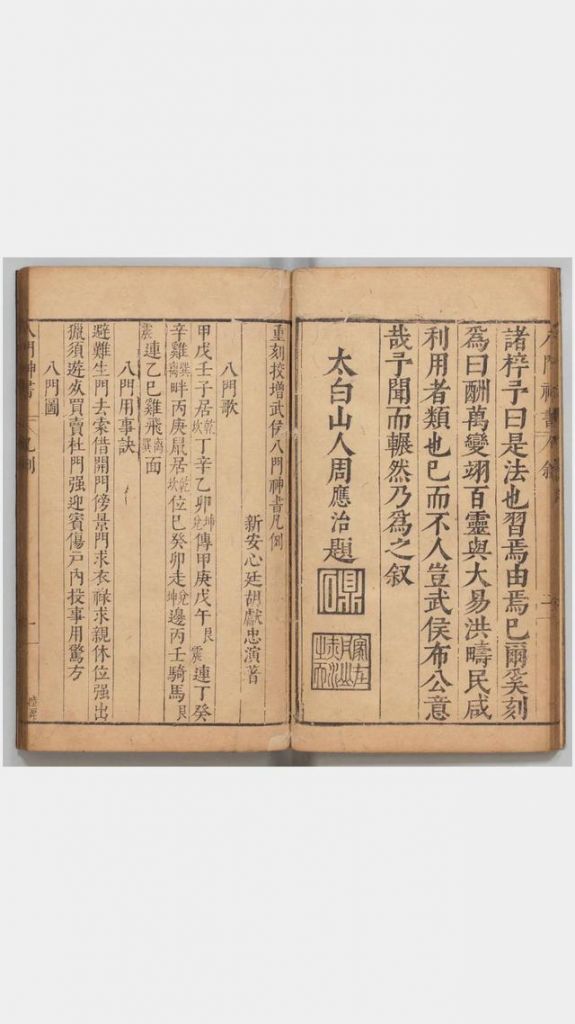 八門神書 叙
諸梓予曰是法也習焉由焉巳爾奚刻
為曰酬萬變翊百靈與大易洪疇民咸
利用者類也巳而不人豈武侯布公意
哉予聞而囅然乃為之叙
太白山人周應治題
重刻校增武侯八門神書凡例
新安心廷胡獻忠演著
八門歌
甲戊壬子居乾坎丁辛乙卯坤兌傳甲庚戊午艮震連丁癸
辛雞巽離畔丙庚鼠居乾坎位巳癸卯走兌坤邊丙壬騎馬艮
震連乙巳雞飛離巽面
八門用事訣
避難生門去索借開門傍景門求衣祿求親休位强出
獵須遊死買賣杜門强迎賓傷戸內投事用驚方
八門圖
八門神書 凡例 一